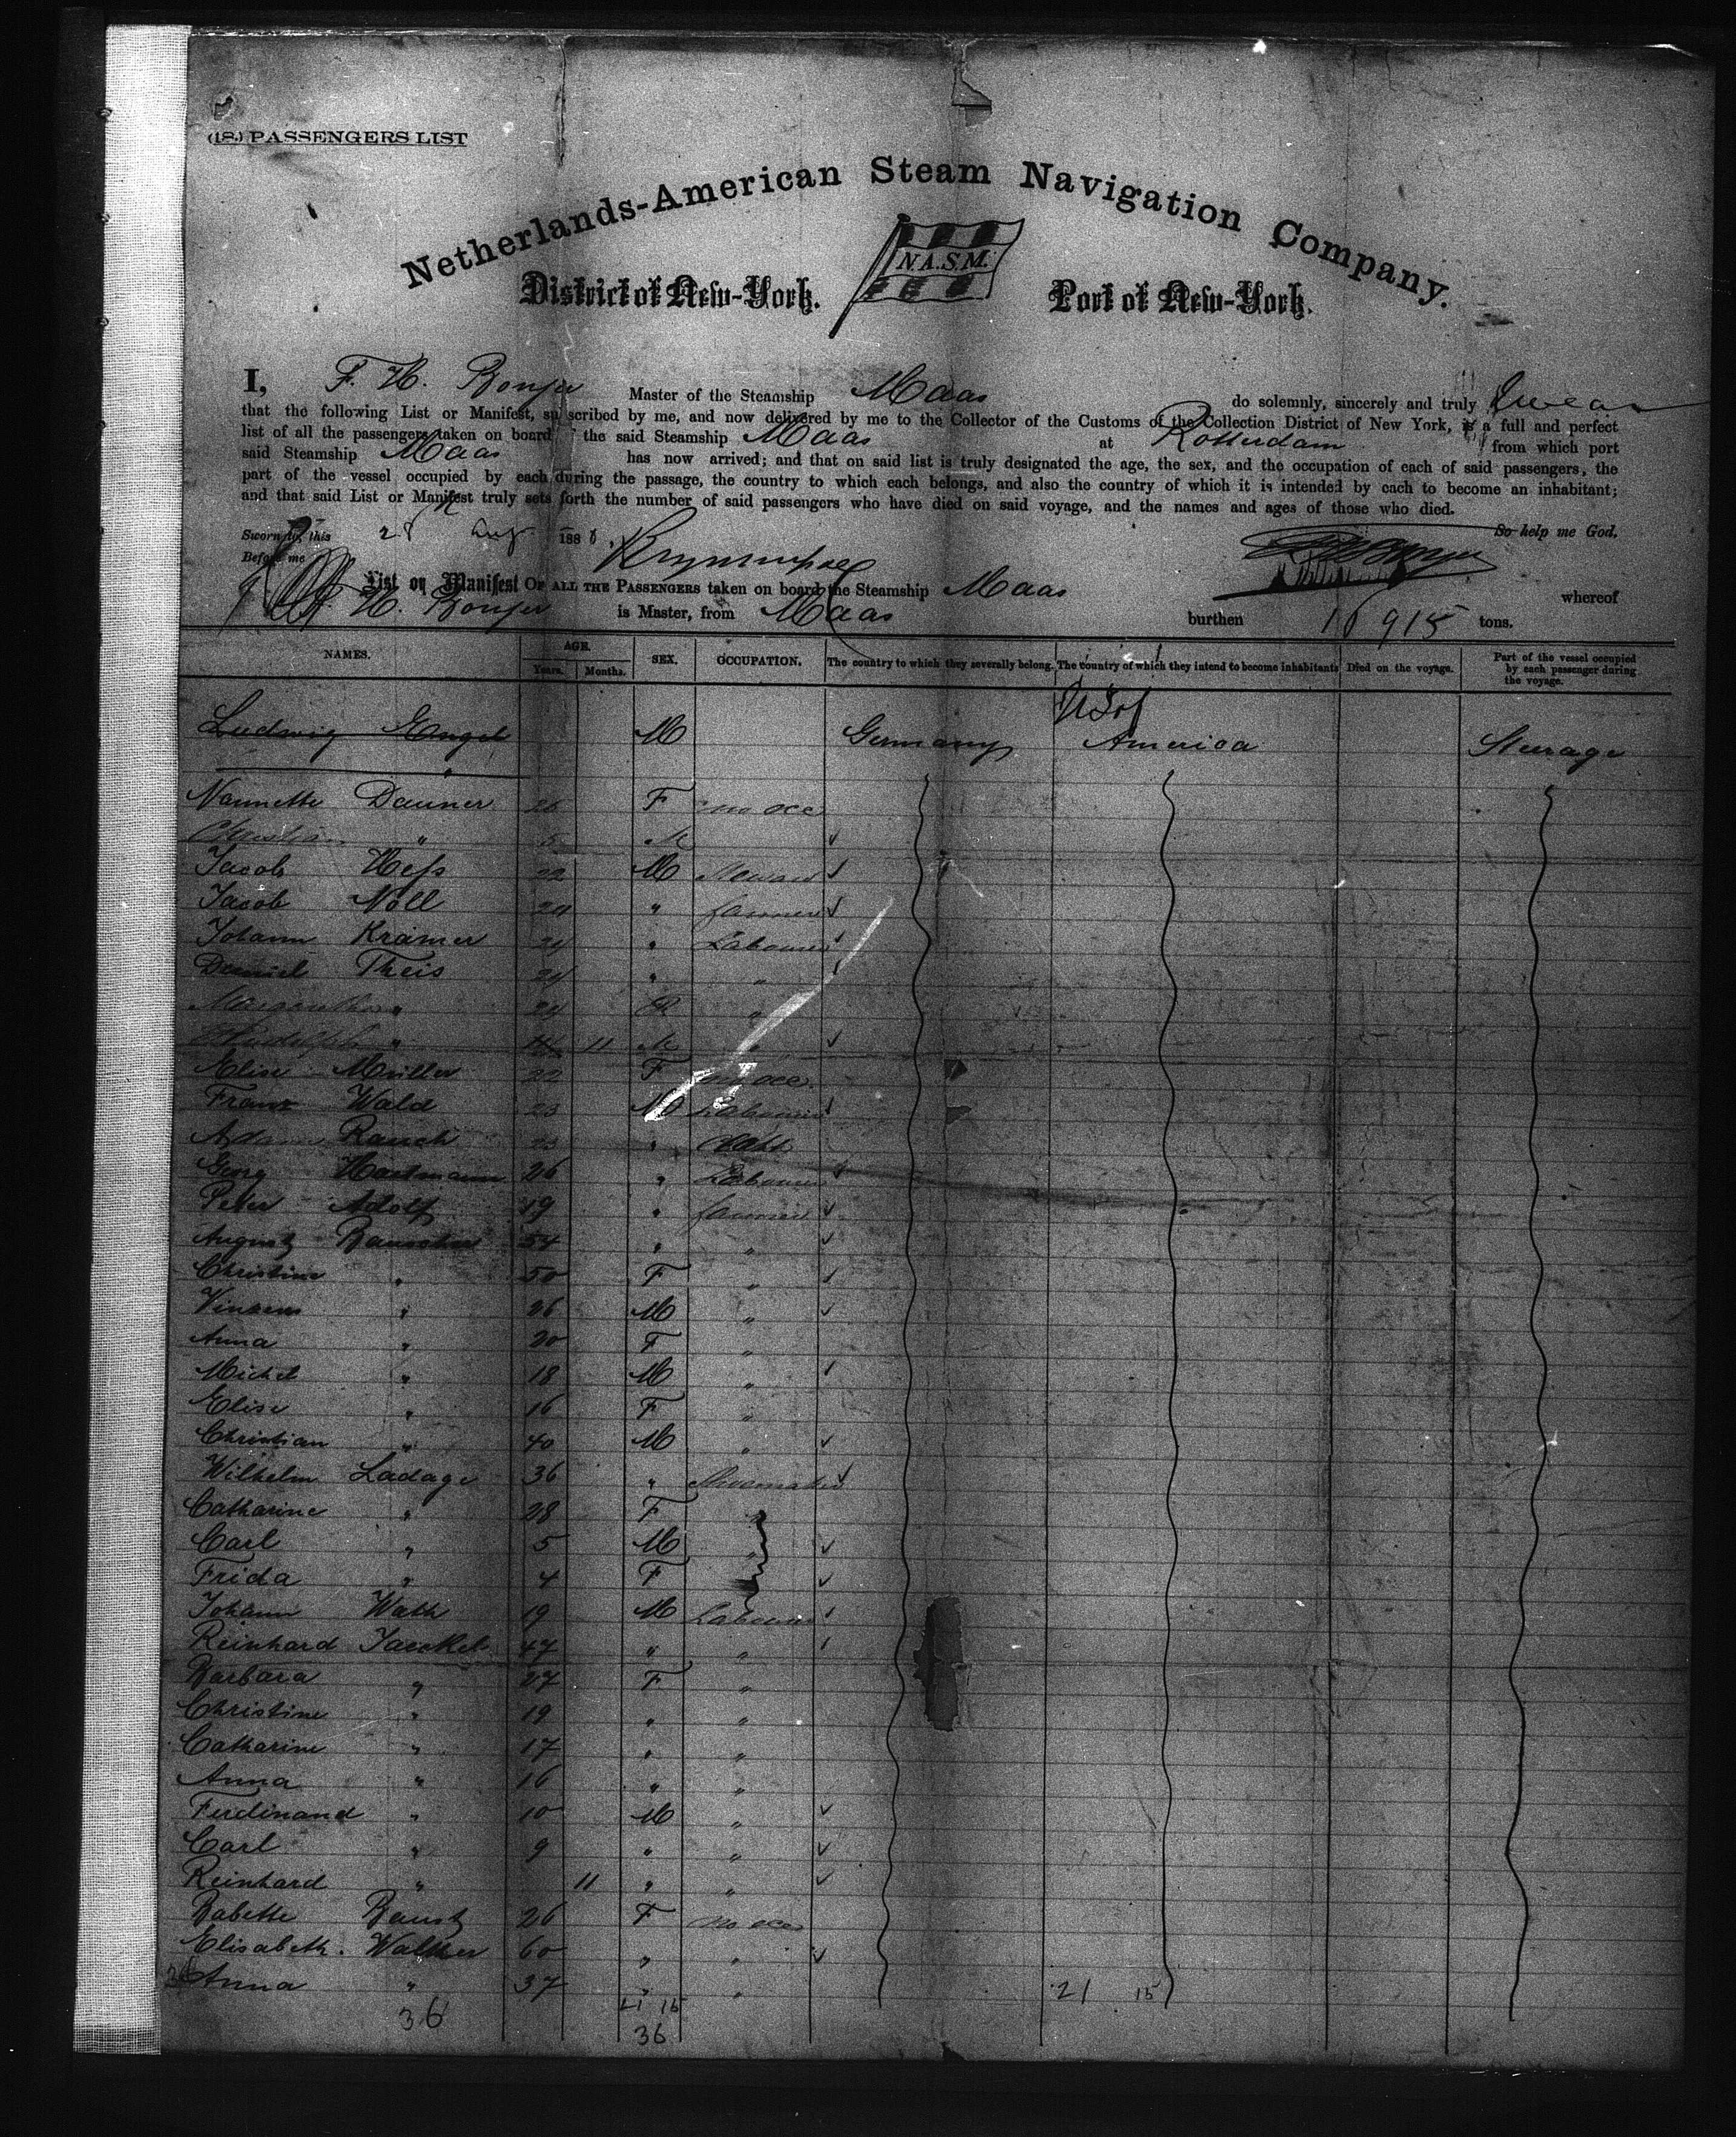 (18.) PASSENGERS LIST
Netherlands-American Steam Navigation Company.
N.A.S.M.
District of New-York. Port of New-York.
I, F. H. Bonjer Master of the Steamship Maas do solemnly, sincerely and truly Swear
that the following List or Manifest, subscribed by me, and now delivered by me to the Collector of the Customs of the Collection District of New York, is a full and perfect
list of all the passengers taken on board of the said Steamship Maas at Rotterdam from which port
said Steamship Maas has now arrived; and that on said list is truly designated the age, the sex, and the occupation of each of said passengers, the
part of the vessel occupied by each during the passage, the country to which each belongs, and also the country of which it is intended by each to become an inhabitant;
and that said List or Manifest truly sets forth the number of said passengers who have died on said voyage, and the names and ages of those who died.
Sworn to, this 28 Aug 188 So help me God.
Before me
List or Manifest OF ALL THE PASSENGERS taken on board the Steamship Maas whereof
F. H. Bonjer is Master, from Maas burthen tons.
NAMES. AGE. Years. Months. SEX. OCCUPATION. The country to which they severally belong. The country of which they intend to become inhabitants Died on the voyage. Part of the vessel occupied by each passenger during the voyage.
Ludwig Engel M Germany America Steerage
Nannette Dauner 25 F no occ
Christian " 5 M
Jacob Hess 22 M
Jacob Noll 24 " farmer
Johann Kramer 24 " Labourer
Daniel Theis 24 " "
Margaretha " 24 F "
Rudolph " 11 M
Elise Muller 22 F no occ.
Franz Wald 23 M Labourer
Adam Rauch 23 "
Georg Hartmann 26 " Labourer
Peter Adolf 19 " farmer
August 54 " "
Christine " 50 F "
Vinzens " 26 M "
Anna " 20 F "
Michel " 18 M "
Elise " 16 F "
Christian " 40 M "
Wilhelm Ladage 36 " Shoemaker
Catharine " 28 F "
Carl " 5 M "
Frida " 4 F
Johann 19 M Labourer
Reinhard Jaeckel 47 " "
Barbara " 27 F "
Christine " 19 " "
Catharine " 17 " "
Anna " 16 " "
Ferdinand " 10 M "
Carl " 9 " "
Reinhard " 11 " "
Babette 26 F no occ
Elisabeth. Walther 60 " "
Anna " 37 " "
36 21 15 21 15
36